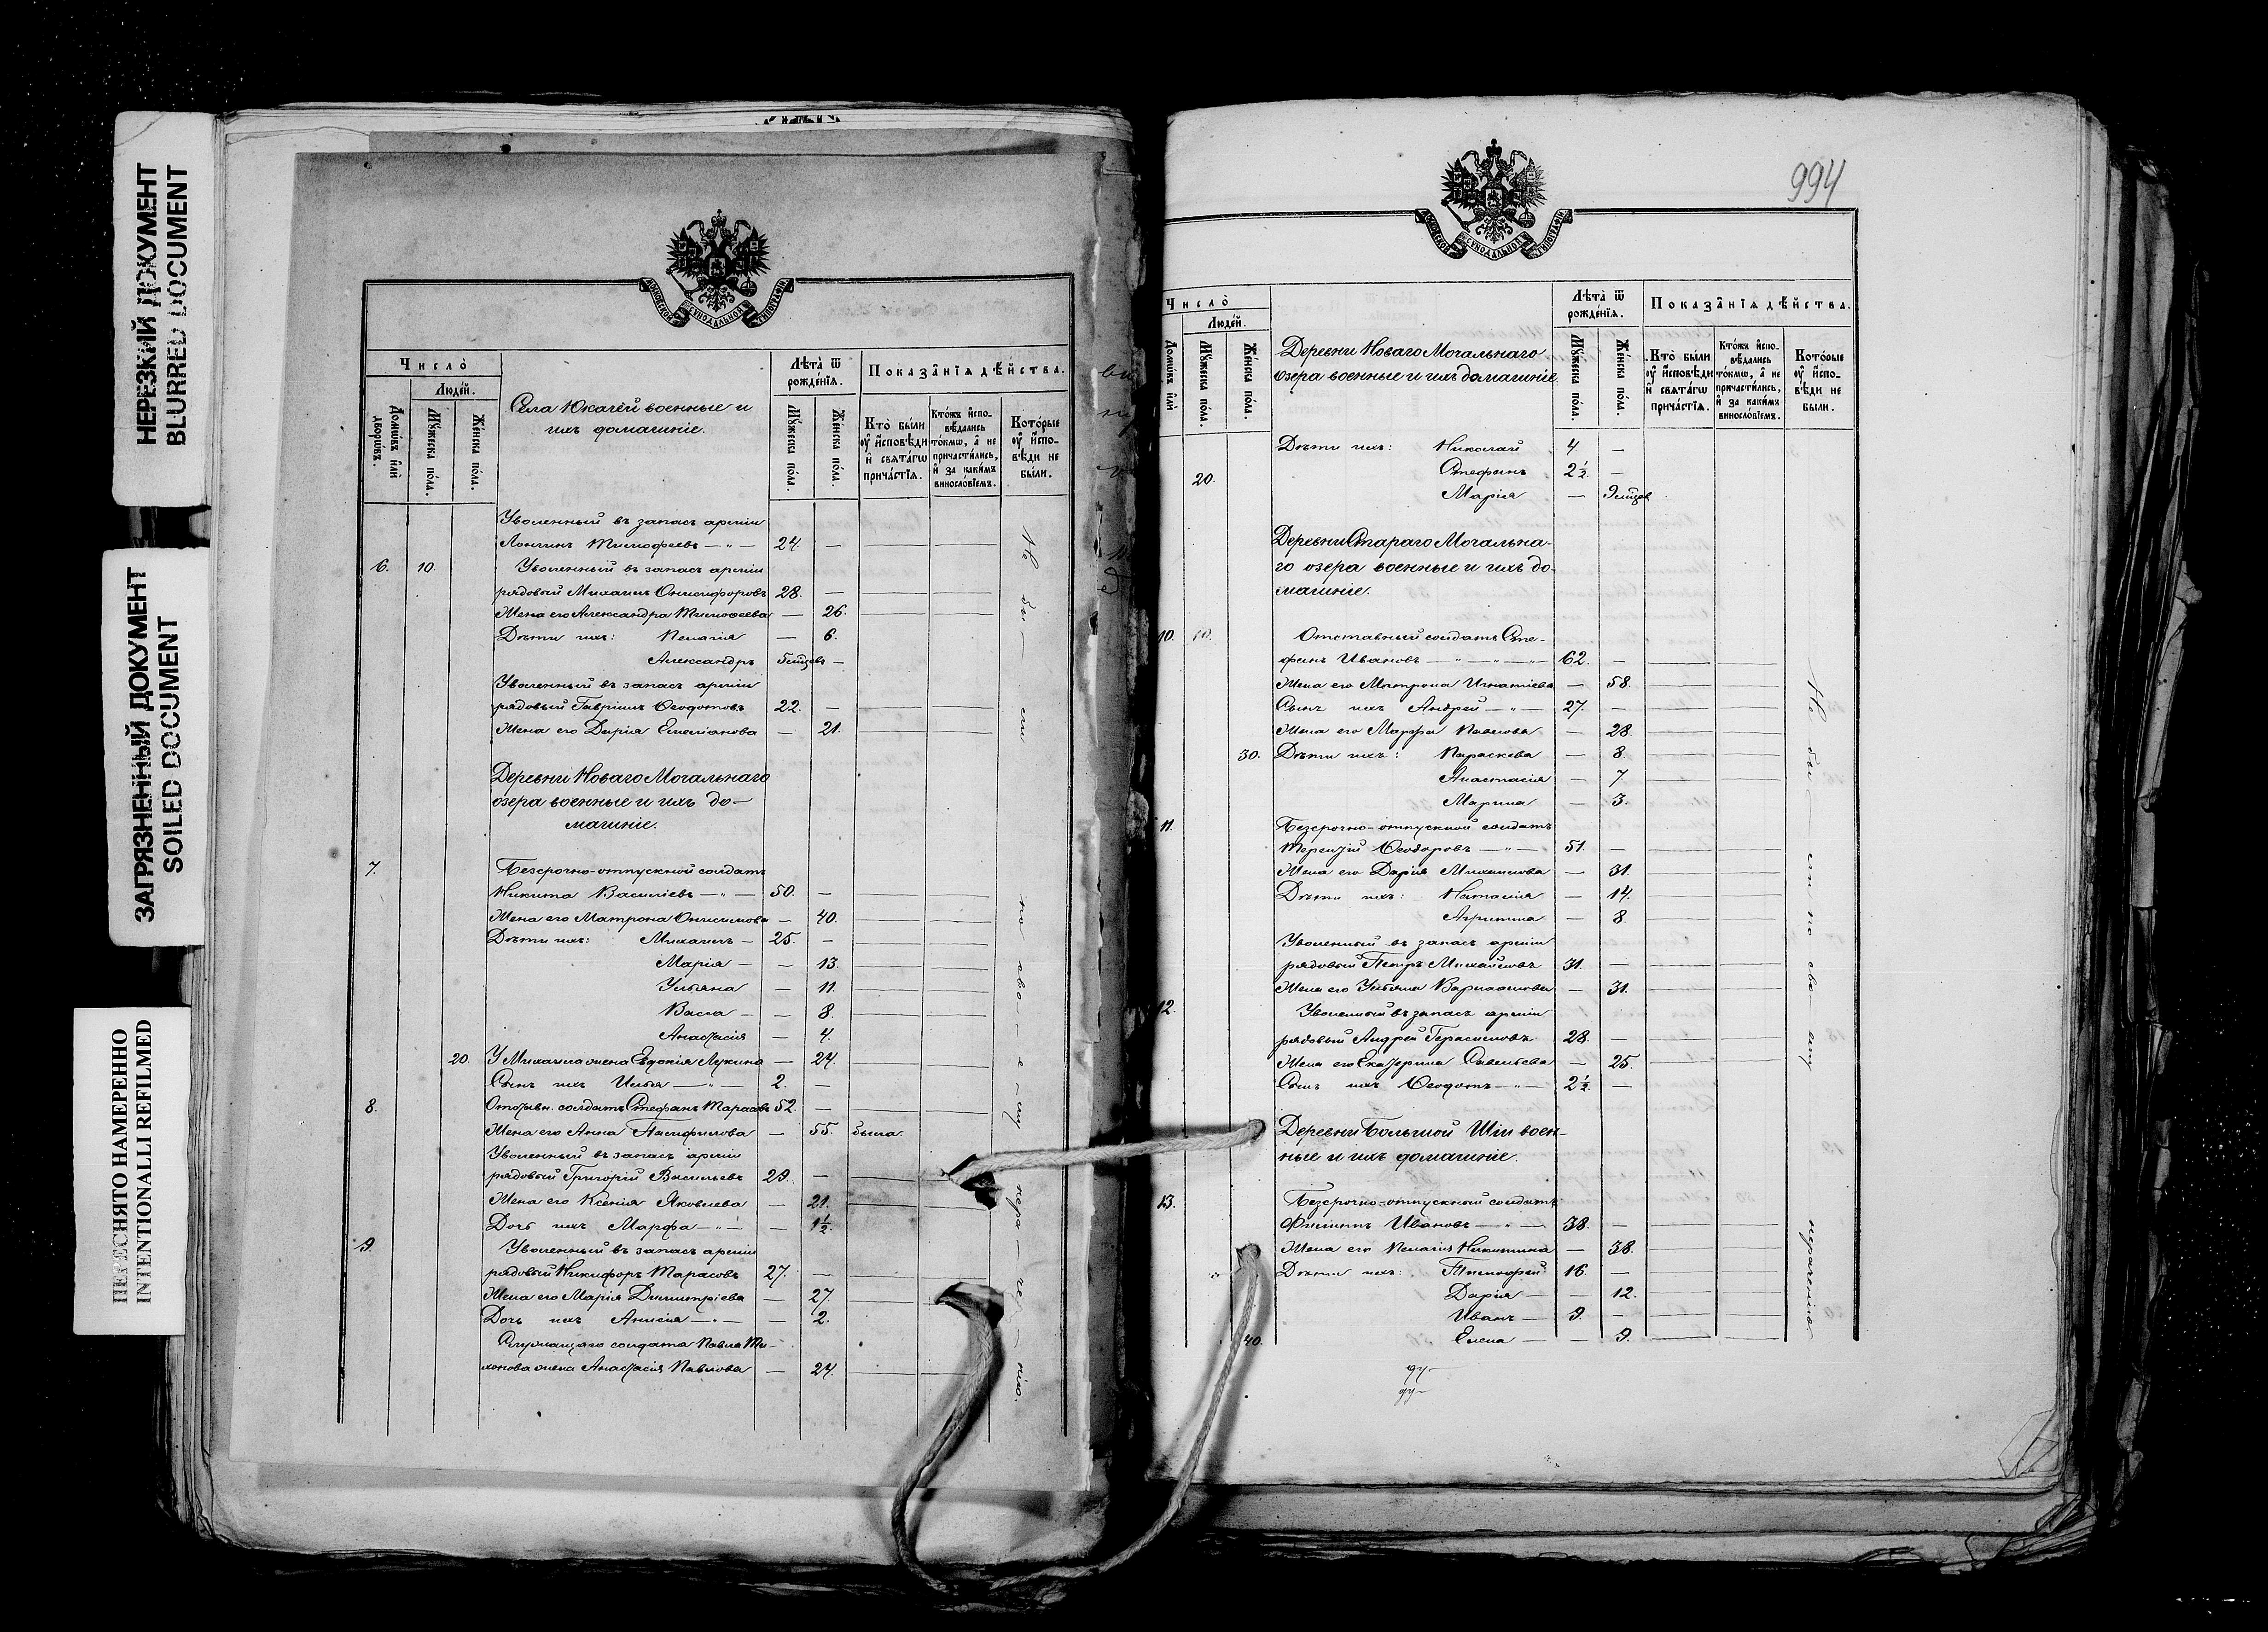 НЕРЕЗКИЙ ДОКУМЕНТ
BLURRED DOCUMENT
ЗАГРЯЗНЕННЫЙ ДОКУМЕНТ
SOILED DOCUMENT
ПЕРЕСНЯТО НАМЕРЕННО
INTENTIONALLI REFILMED
МОСКОВСКОЙ СУНОДАЛЬНОЙ ТИПОГРАФІИ
Число̀
Людей.
Домѡвъ илѝ дворѡвъ.
Мꙋжеска по́ла.
Же́нска по́ла.
Села Юкачей военные и
ихъ домашніе.
Лѣта̀ ѿ рожде́нїѧ.
Мꙋжеска по́ла.
Же́нска по́ла.
Показа̑нїѧ дѣ́йства.
Кто̀ бы́ли ᲂу҆ и҆́сповѣди и҆ свѧта́гѡ прича́стїѧ.
Кто́жъ и҆спо- вѣ́дались то́кмѡ, а҆ не причасти́лись, и҆ за каки́мъ винословіемъ.
Кото́рые ᲂу҆ и҆́спо- вѣди не бы́ли.
Уволенный въ запасъ арміи
Лонгинъ Тимофеевъ — " — 24. —
6. 10. Уволенный въ запасъ арміи
рядовый Михаилъ Онисифоровъ 28. —
Жена его Александра Тимофеева — 26.
Дѣти ихъ: Пелагія — 6.
Александръ 5 мѣсяцевъ —
Уволенный въ запасъ арміи
рядовый Гавріилъ Ѳеодотовъ 22. —
Жена его Дарія Емеліанова — 21.
Деревни Новаго Мочальнаго
озера военные и ихъ до-
машніе.
7. Безсрочно-отпускной солдатъ
Никита Василіевъ — " — 50. —
Жена его Матрона Онисимова — 40.
Дѣти ихъ: Михаилъ — 25. —
Марія — — 13.
Ульяна — 11.
Васса — — 8.
Анастасія — 4.
20. У Михаила жена Евдокія Лукина — 24.
Сынъ ихъ Илья — " — 2. —
8. Отставн. солдатъ Стефанъ Тарасовъ 52. —
Жена его Анна Панфилова — 55. была.
Уволенный въ запасъ арміи
рядовый Григорій Васильевъ 29. —
Жена его Ксенія Яковлева — 21.
Дочь ихъ Марфа — " — — 1½.
9. Уволенный въ запасъ арміи
рядовый Никифоръ Тарасовъ 27. —
Жена его Марія Димитріева — 27.
Дочь ихъ Анисія — " — — 2.
Служащаго солдата Павла Ти-
хонова жена Анастасія Павлова — 24.
Не бы — ли по сво — е — му нера — че — нію.
994
МОСКОВСКОЙ СУНОДАЛЬНОЙ ТИПОГРАФІИ
Число̀
Людей.
Домѡвъ илѝ
Мꙋжеска по́ла.
Же́нска по́ла.
Деревни Новаго Мочальнаго
озера военные и ихъ домашніе.
Лѣта̀ ѿ рожде́нїѧ.
Мꙋжеска по́ла.
Же́нска по́ла.
Показа̑нїѧ дѣ́йства.
Кто̀ бы́ли ᲂу҆ и҆́сповѣди и҆ свѧта́гѡ прича́стїѧ.
Кто́жъ и҆спо- вѣ́дались то́кмѡ, а҆ не причасти́лись, и҆ за каки́мъ винословіемъ.
Кото́рые ᲂу҆ и҆́спо- вѣди не бы́ли.
Дѣти ихъ: Николай 4. —
20. Стефанъ 2½. —
Марія — 9 мѣсяцев
Деревни Стараго Мочальна-
го озера военные и ихъ до-
машніе.
10. Отставный солдатъ Сте-
фанъ Ивановъ — " — " — " — 62. —
Жена его Матрона Игнатіева — 58.
Сынъ ихъ Андрей — " — 27. —
Жена его Марфа Павлова — 28.
30. Дѣти ихъ: Параскева — 8.
Анастасія — 7.
Марина — 3.
11. Безсрочно-отпускной солдатъ
Терентій Ѳеодоровъ — " — 51. —
Жена его Дарія Михаилова — 31.
Дѣти ихъ: Наталія — 14.
Агрипина — 8.
Уволенный въ запасъ арміи
рядовый Петръ Михайловъ 31. —
Жена его Ульяна Варлаамова — 31.
12. Уволенный въ запасъ арміи
рядовый Андрей Герасимовъ 28. —
Жена его Екатерина Савельева — 25.
Сынъ ихъ Ѳеодотъ — " — 2½. —
Деревни Большой Ши воен-
ные и ихъ домашніе.
13. Безсрочно-отпускный солдатъ
Филиппъ Ивановъ — " — 38. —
Жена его Пелагія Никитина — 38.
Дѣти ихъ: Тимофей 16. —
Дарія — — 12.
Иванъ — 9. —
40. Елена — — 9.
Не бы — ли по сво ему нераченію